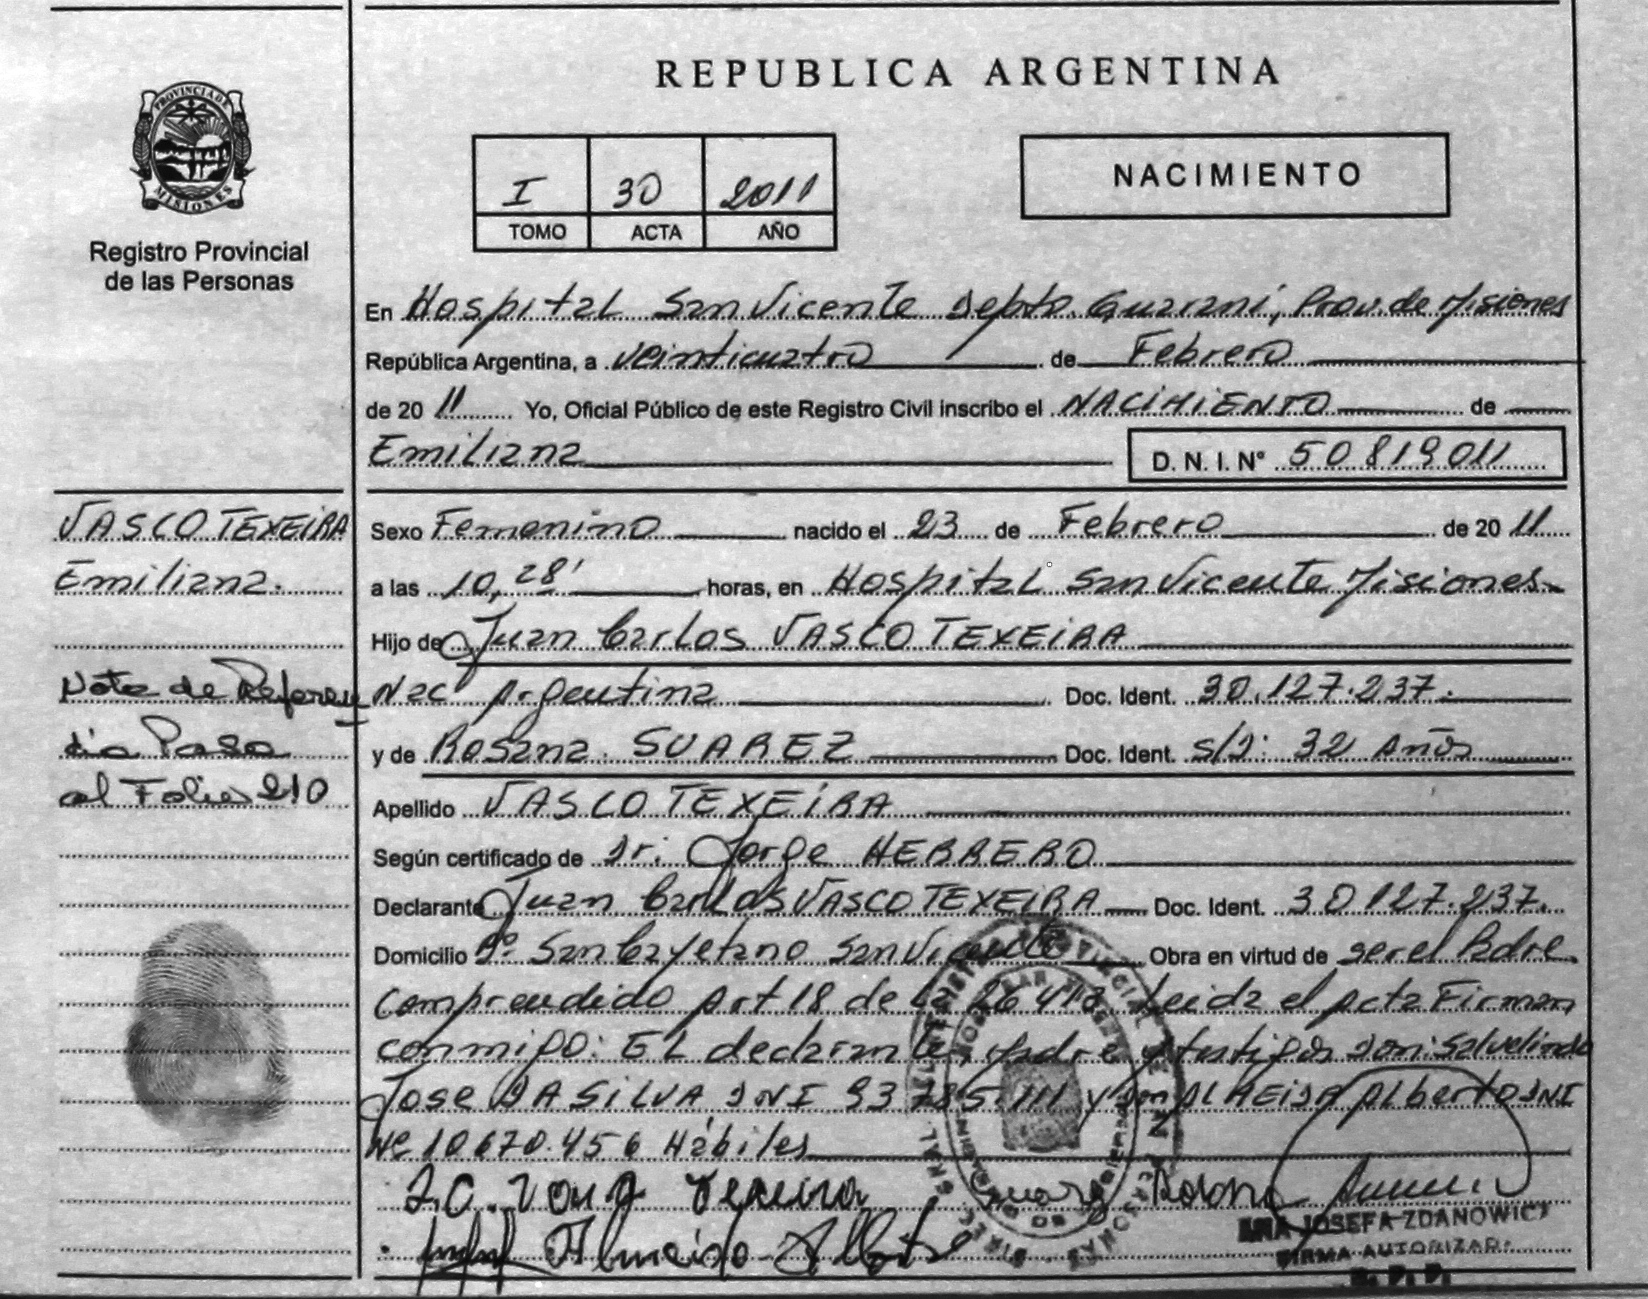 REPUBLICA ARGENTINA
PROVINCIA DE
MISIONES
Registro Provincial
de las Personas
I 30 2011
TOMO ACTA AÑO
NACIMIENTO
En Hospital San Vicente Depto. Guarani, Prov. de Misiones
República Argentina, a veinticuatro de Febrero
de 20 11 Yo, Oficial Público de este Registro Civil inscribo el NACIMIENTO de
Emiliana D. N. I. N° 50819011
VASCO TEXEIRA
Emiliana.
Nota de Referen
cia Pasa
al Folio 210
Sexo Femenino nacido el 23 de Febrero de 20 11
a las 10,28' horas, en Hospital San Vicente Misiones
Hijo de Juan Carlos VASCO TEXEIRA
Nac Argentina Doc. Ident. 30.127.237.
y de Rosana SUAREZ Doc. Ident. s/D: 32 Años
Apellido VASCO TEXEIRA
Según certificado de Dr. Jorge HERRERO
Declarante Juan Carlos VASCO TEXEIRA Doc. Ident. 30.127.237.
Domicilio Bº San Cayetano San Vicente Obra en virtud de ser el Padre
Comprendido Art 18 de la 26.413 Leida el Acta Firman
conmigo: El declarante, Madre y testigos Don: Salvelindo
Jose DA SILVA DNI 93 785.111 y Don ALMEIDA Alberto DNI
Nº 10.670.456 Hábiles
J.C. Vasco Texeira Suarez Rosana
Almeida Alberto
JOSEFA ZDANOWICZ
FIRMA AUTORIZADA
R. P. P.